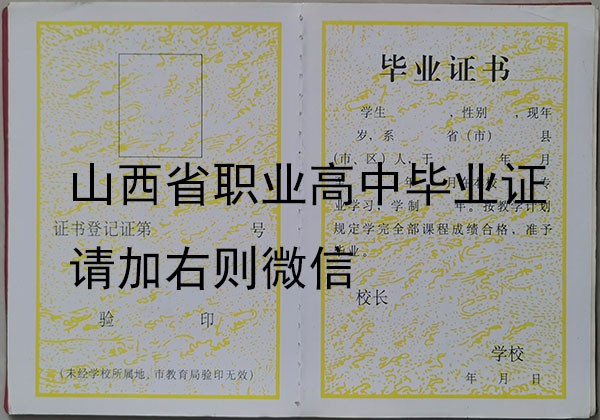 证书登记证第 号
验 印
(未经学校所属地、市教育局验印无效)
毕业证书
学生 ,性别 ,现年
岁,系 省(市) 县
(市、区)人,于 年 月
业学习,学制 年。按教学计划
规定学完全部课程成绩合格,准予
毕业。
校长
学校
年 月 日
山西省职业高中毕业证
请加右则微信